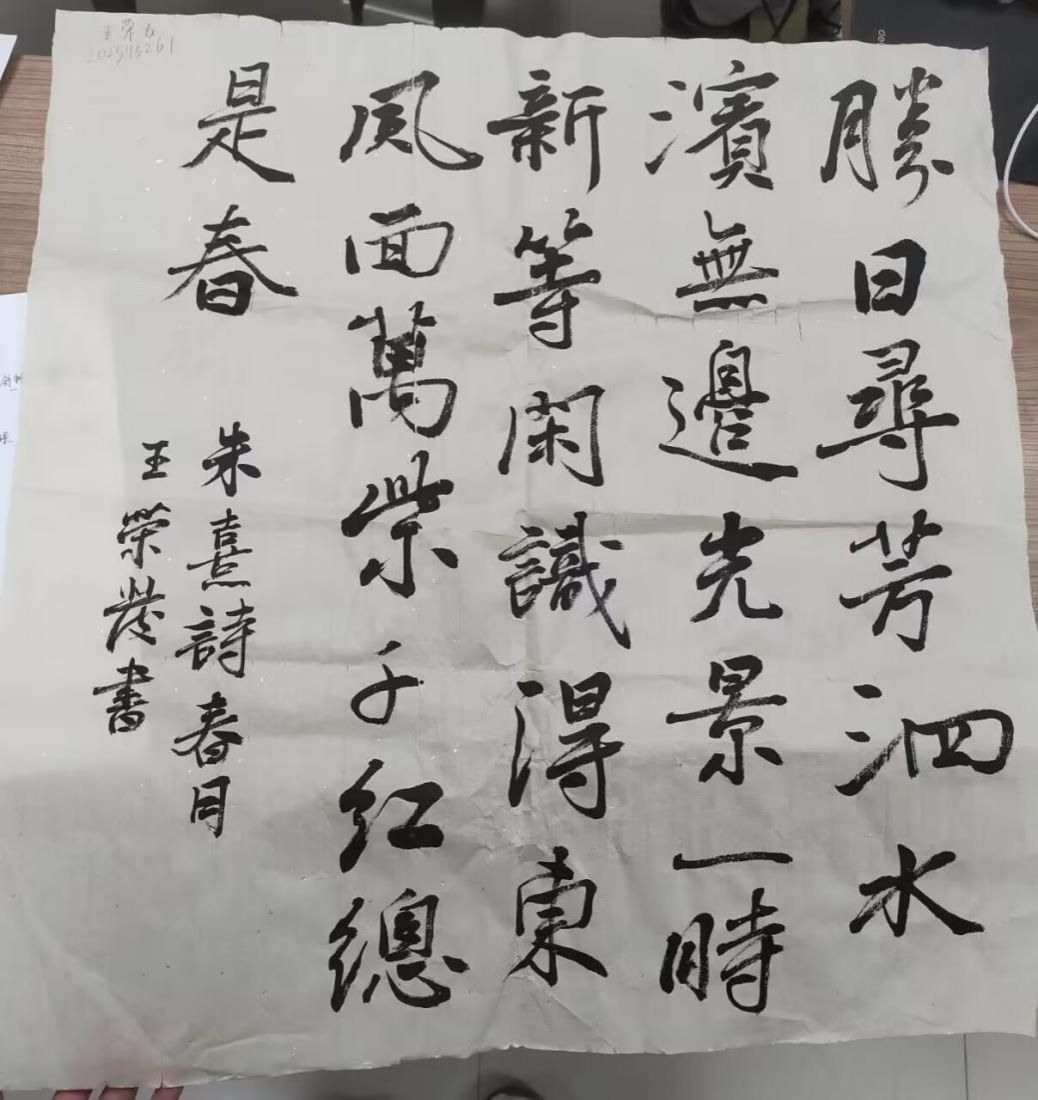 勝日尋芳泗水
濱無邊光景一時
新等閑識得東
風面萬紫千紅總
是春
朱熹詩春日
王榮發書
王荣发
2023115261